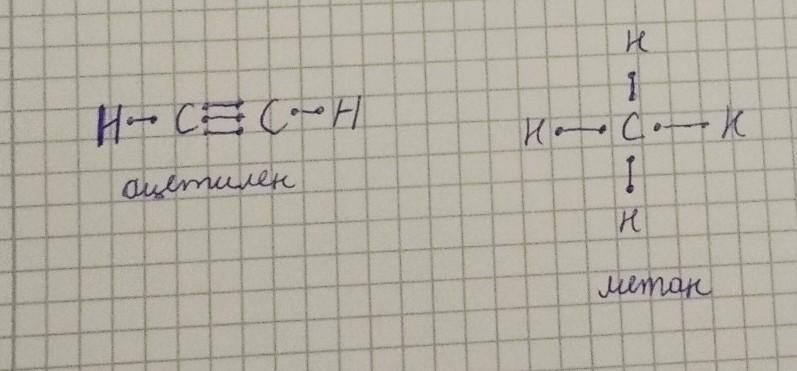 H
H - C ≡ C - H
H - C - H
ацетилен
H
метан